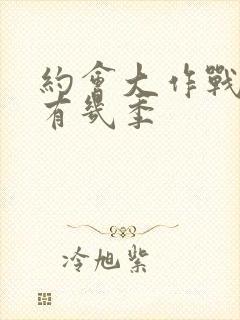 約會大作戰
有幾季
冷旭紫